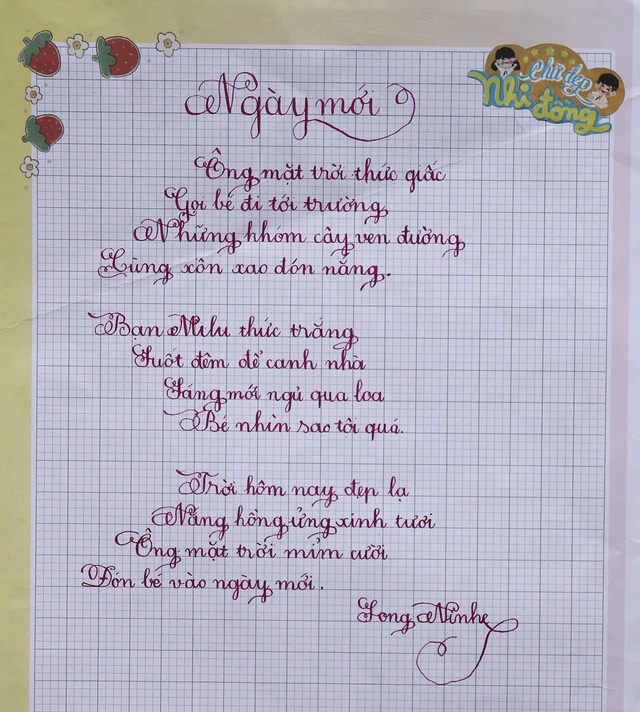 Chữ đẹp
Nhi đồng
Ngày mới
Ông mặt trời thức giấc
Gọi bé đi tới trường
Những khóm cây ven đường
Cùng xôn xao đón nắng.
Bạn Milu thức trắng
Suốt đêm để canh nhà
Sáng mới ngủ qua loa
Bé nhìn sao tội quá.
Trời hôm nay đẹp lạ
Nắng hồng ửng xinh tươi
Ông mặt trời mỉm cười
Đón bé vào ngày mới.
Song Ninh